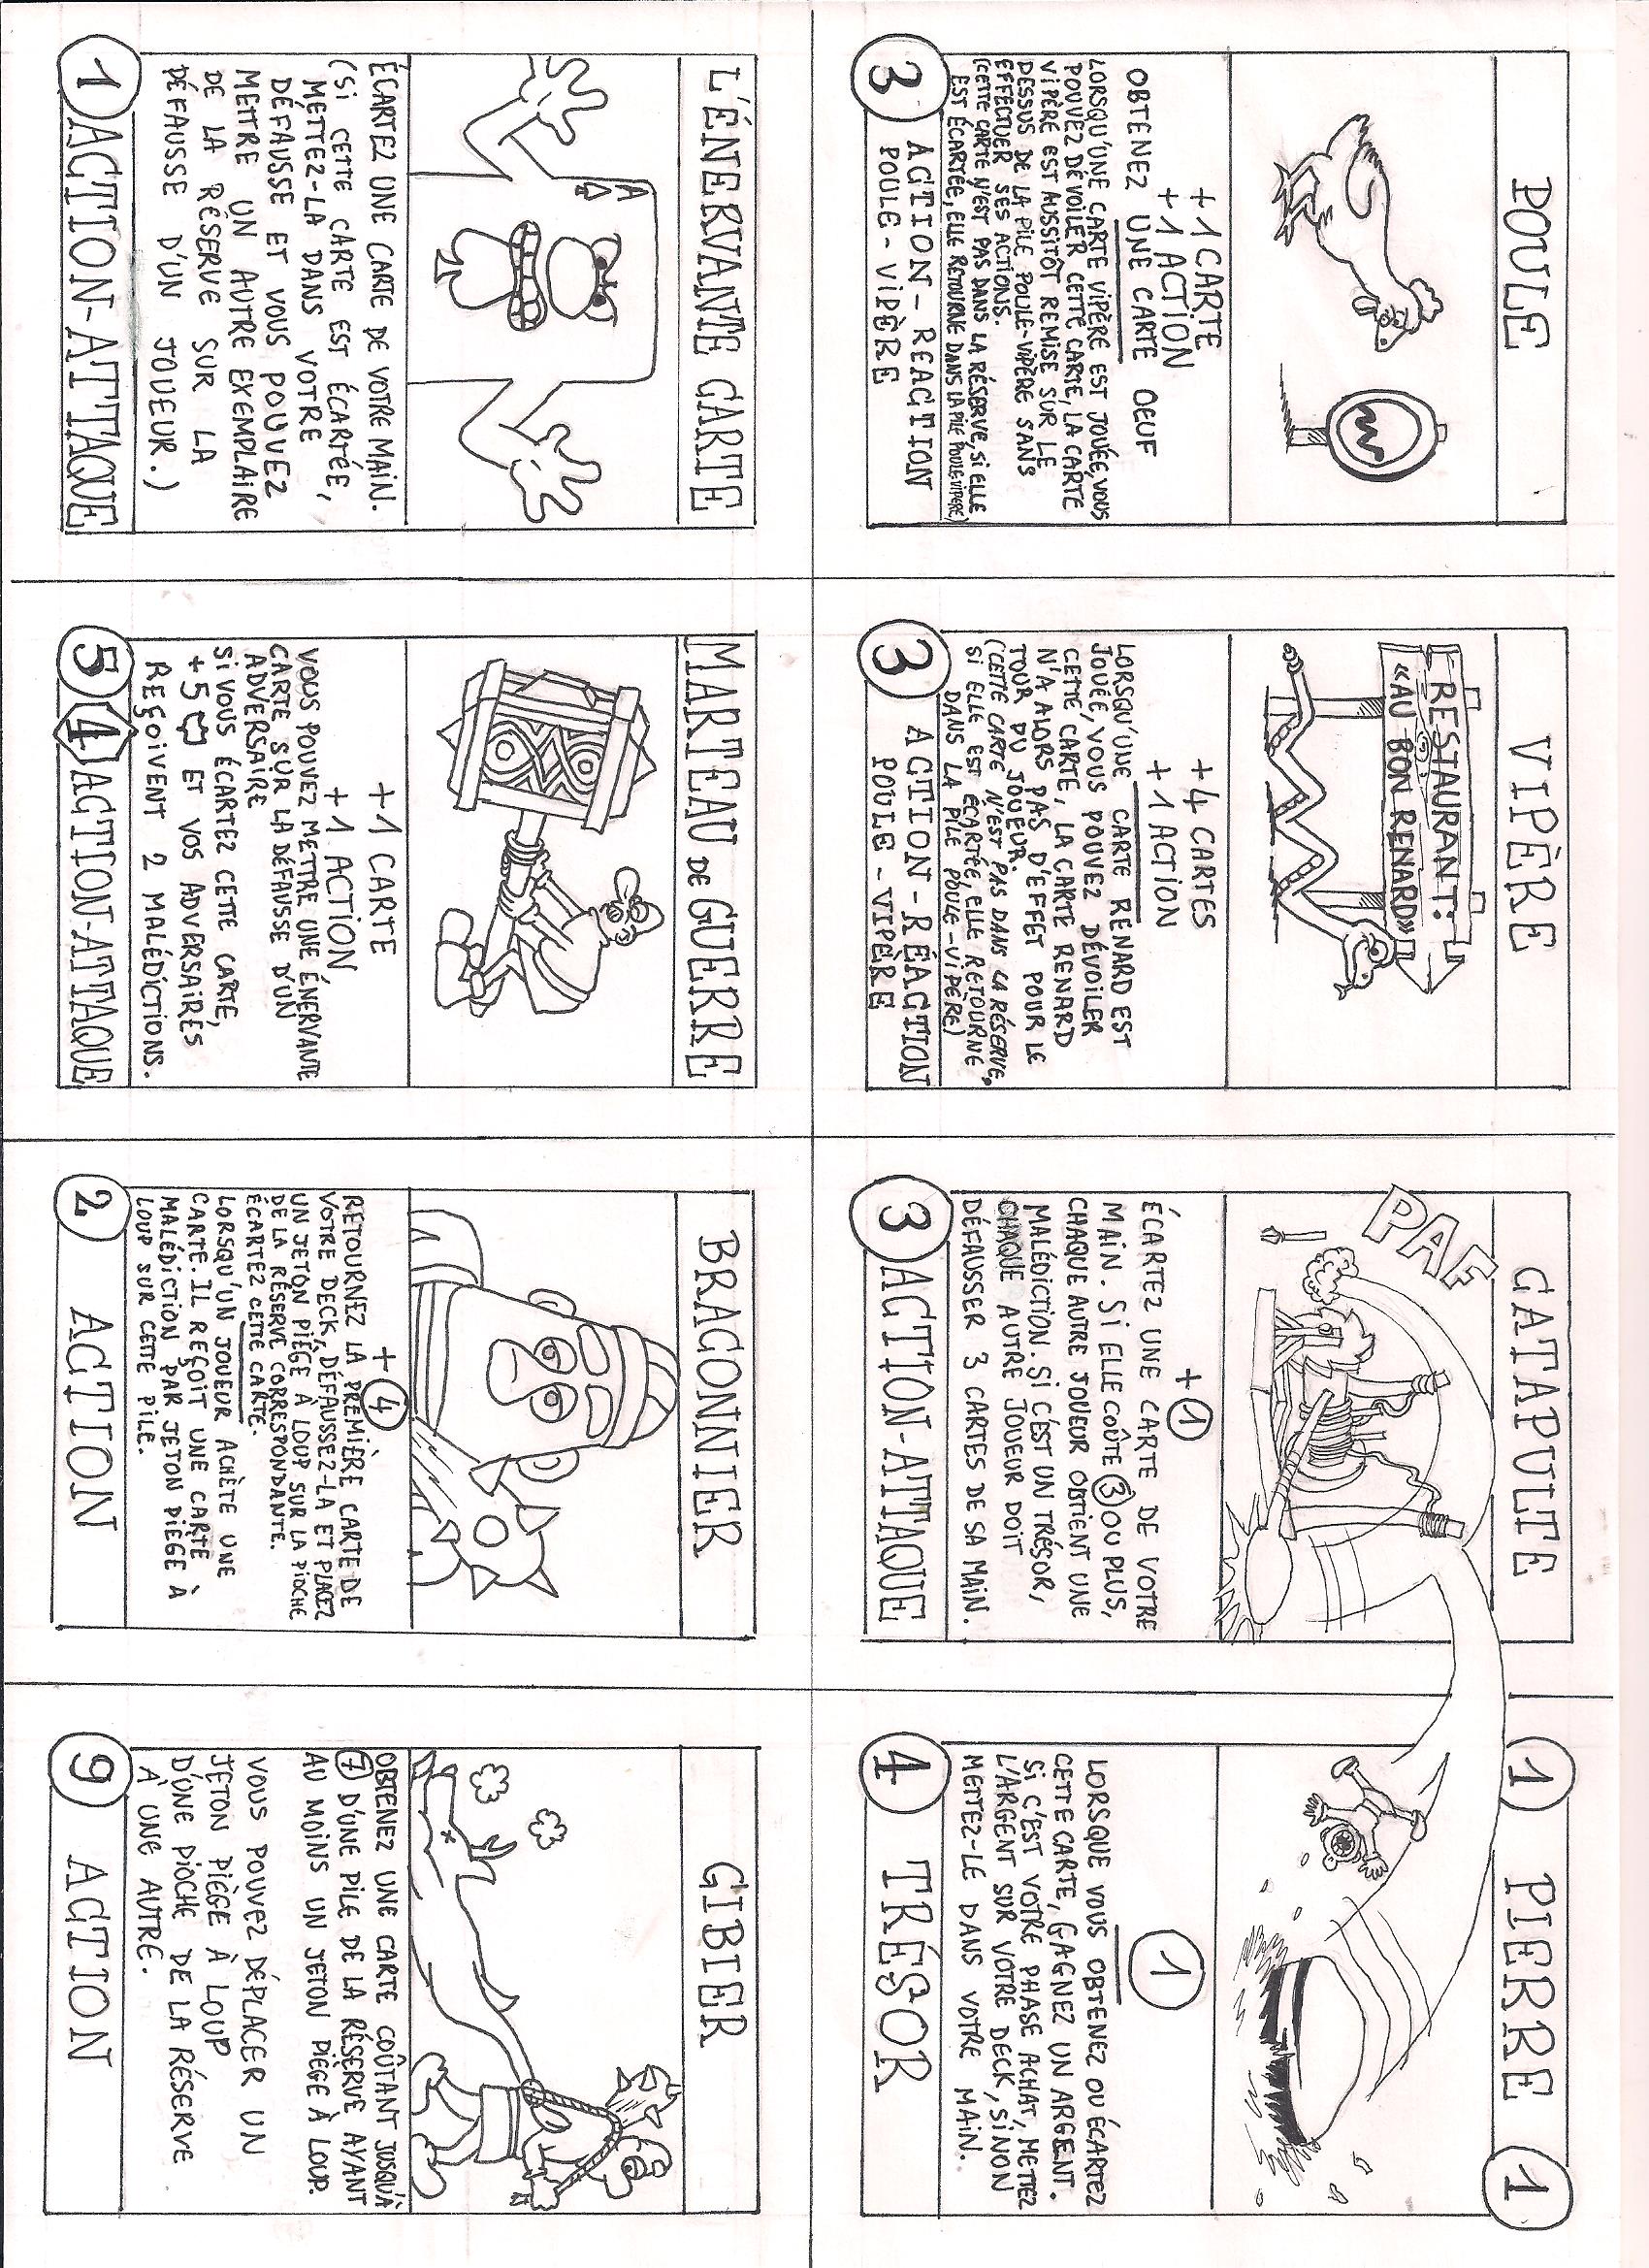 POULE
+1 CARTE
+1 ACTION
OBTENEZ UNE CARTE OEUF
LORSQU'UNE CARTE VIPÈRE EST JOUÉE, VOUS
POUVEZ DÉVOILER CETTE CARTE, LA CARTE
VIPÈRE EST AUSSITÔT REMISE SUR LE
DESSUS DE LA PILE POULE-VIPÈRE SANS
EFFECTUER SES ACTIONS.
(CETTE CARTE N'EST PAS DANS LA RÉSERVE, SI ELLE
EST ÉCARTÉE, ELLE RETOURNE DANS LA PILE POULE-VIPÈRE)
3
ACTION-REACTION
POULE-VIPÈRE
VIPÈRE
RESTAURANT:
«AU BON RENARD»
+4 CARTES
+1 ACTION
LORSQU'UNE CARTE RENARD EST
JOUÉE, VOUS POUVEZ DÉVOILER
CETTE CARTE, LA CARTE RENARD
N'A ALORS PAS D'EFFET POUR LE
TOUR DU JOUEUR.
(CETTE CARTE N'EST PAS DANS LA RÉSERVE,
SI ELLE EST ÉCARTÉE, ELLE RETOURNE
DANS LA PILE POULE-VIPÈRE)
3
ACTION-RÉACTION
POULE-VIPÈRE
CATAPULTE
PAF
+①
ÉCARTEZ UNE CARTE DE VOTRE
MAIN. SI ELLE COÛTE ③ OU PLUS,
CHAQUE AUTRE JOUEUR OBTIENT UNE
MALÉDICTION. SI C'EST UN TRÉSOR,
CHAQUE AUTRE JOUEUR DOIT
DÉFAUSSER 3 CARTES DE SA MAIN.
3
ACTION-ATTAQUE
1 PIERRE 1
1
LORSQUE VOUS OBTENEZ OU ÉCARTEZ
CETTE CARTE, GAGNEZ UN ARGENT.
SI C'EST VOTRE PHASE ACHAT, METTEZ
L'ARGENT SUR VOTRE DECK, SINON
METTEZ-LE DANS VOTRE MAIN.
4
TRÉSOR
L'ÉNERVANTE CARTE
A
ÉCARTEZ UNE CARTE DE VOTRE MAIN.
(SI CETTE CARTE EST ÉCARTÉE,
METTEZ-LA DANS VOTRE
DÉFAUSSE ET VOUS POUVEZ
METTRE UN AUTRE EXEMPLAIRE
DE LA RÉSERVE SUR LA
DÉFAUSSE D'UN JOUEUR.)
1
ACTION-ATTAQUE
MARTEAU DE GUERRE
+1 CARTE
+1 ACTION
VOUS POUVEZ METTRE UNE ÉNERVANTE
CARTE SUR LA DÉFAUSSE D'UN
ADVERSAIRE.
SI VOUS ÉCARTEZ CETTE CARTE,
+5 ET VOS ADVERSAIRES
REÇOIVENT 2 MALÉDICTIONS.
5 4
ACTION-ATTAQUE
BRACONNIER
+④
RETOURNEZ LA PREMIÈRE CARTE DE
VOTRE DECK, DÉFAUSSEZ-LA ET PLACEZ
UN JETON PIÈGE À LOUP SUR LA PIOCHE
DE LA RÉSERVE CORRESPONDANTE.
ÉCARTEZ CETTE CARTE.
LORSQU'UN JOUEUR ACHÈTE UNE
CARTE. IL REÇOIT UNE CARTE
MALÉDICTION PAR JETON PIÈGE À
LOUP SUR CETTE PILE.
2
ACTION
GIBIER
OBTENEZ UNE CARTE COÛTANT JUSQU'À
⑦ D'UNE PILE DE LA RÉSERVE AYANT
AU MOINS UN JETON PIÈGE À LOUP.
VOUS POUVEZ DÉPLACER UN
JETON PIÈGE À LOUP
D'UNE PIOCHE DE LA RÉSERVE
À UNE AUTRE.
9
ACTION